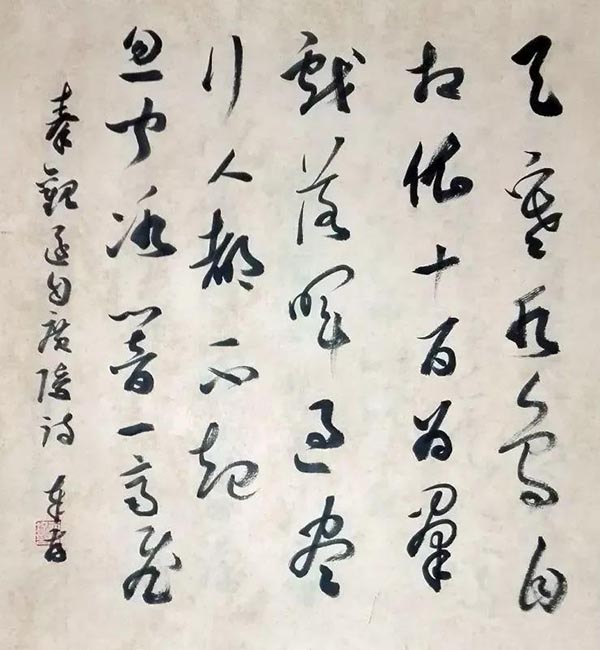 天寒水鳥自
相依十百為羣
戲落暉過盡
行人都不起
忽聞冰響一齊飛
秦觀還自廣陵詩